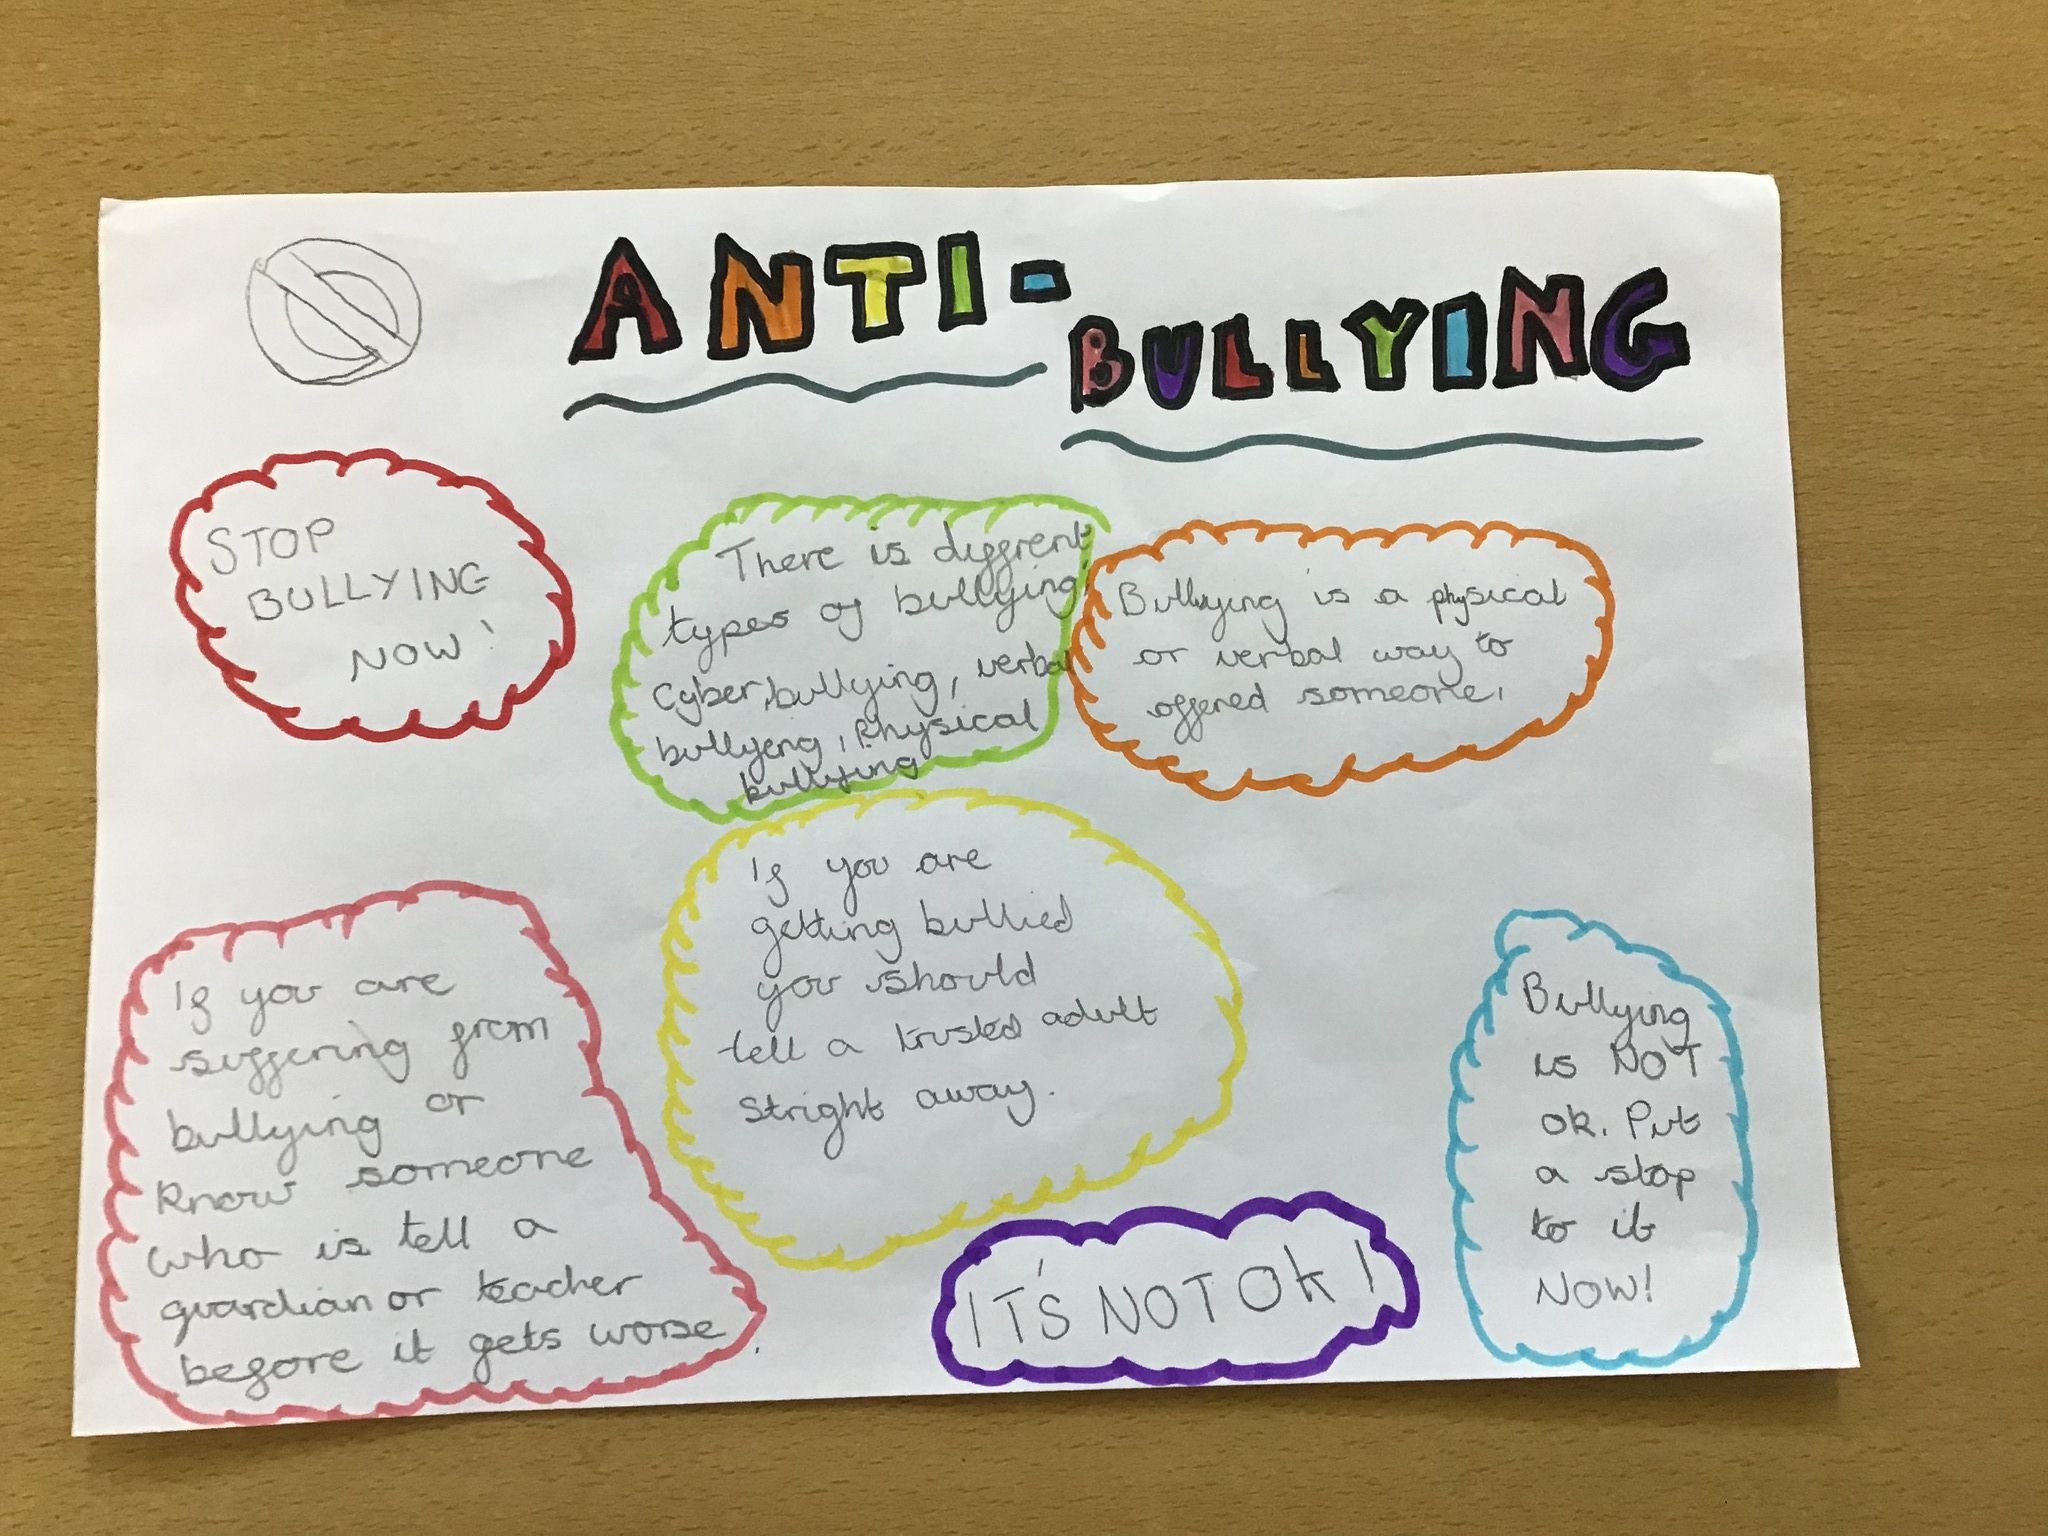 ANTI-
BULLYING
STOP
BULLYING
NOW!
There is diffrent
types of bullying!
Cyber, bullying, verbal
bullyeng, physical
bullying
Bullying is a physical
or verbal way to
offered someone,
If you are
getting bullied
you should
tell a trusted adult
stright away.
If you are
suffering from
bullying or
know someone
who is tell a
guardian or teacher
before it gets worse.
IT'S NOT OK!
Bullying
is NOT
ok. Put
a stop
to it
NOW!